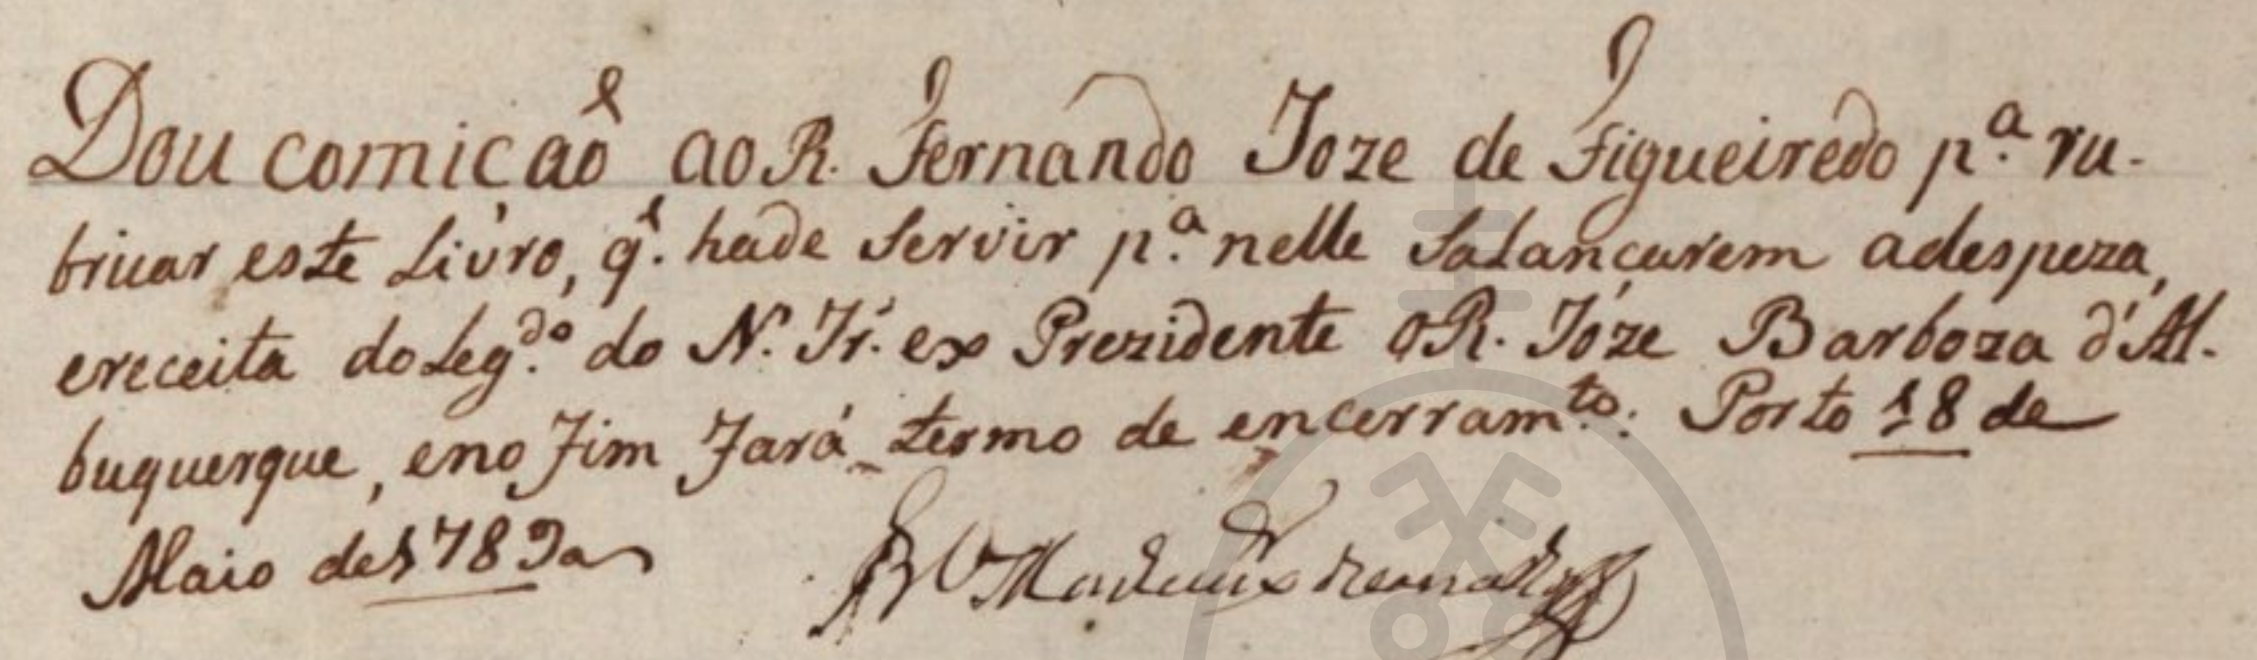 Dou comiçaõ ao R. Fernando Joze de Figueiredo p.ª ru-
bricar este Livro, q̃. hade Servir p.ª nelle Salançarem adespeza,
ereceita do Leg.do do N. Ir. ex Prezidente o R. Józe Barboza d'Al-
buquerque, eno Fim Fará termo de encerram.to: Porto 18 de
Maio de 1789a